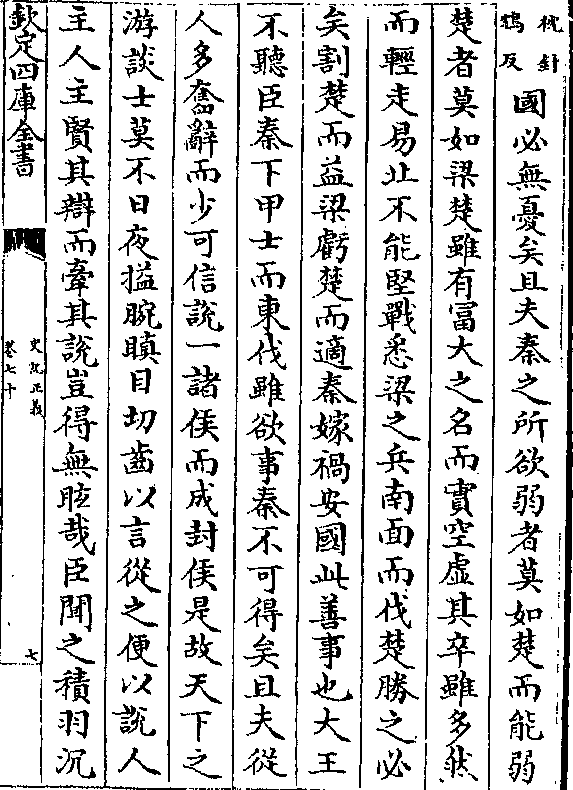 枕針
鴆反
國必無憂矣且夫秦之所欲弱者莫如楚而能弱
楚者莫如梁楚雖有富大之名而實空虚其卒雖多然
而輕走易北不能堅戰悉梁之兵南面而伐楚勝之必
矣割楚而益梁虧楚而適秦嫁禍安國此善事也大王
不聽臣秦下甲士而東伐雖欲事秦不可得矣且夫從
人多奮辭而少可信說一諸侯而成封侯是故天下之
游談士莫不日夜搤腕瞋目切齒以言從之便以說人
主人主賢其辯而牽其說豈得無眩哉臣聞之積羽沉
欽定四庫全書
史記正義
卷七十
七